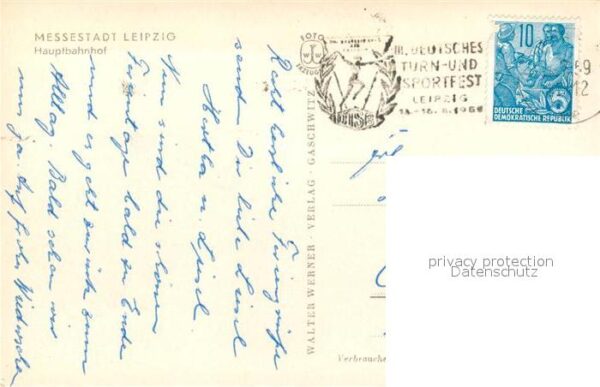 MESSESTADT LEIPZIG
Hauptbahnhof
FOTO
III. DEUTSCHES
TURN-UND
SPORTFEST
LEIPZIG
10
5
DEUTSCHE
DEMOKRATISCHE REPUBLIK
WALTER WERNER · VERLAG · GASCHWITZ
Recht herzliche Feriengrüße
sendet Dir liebe Liesel
Hertha u. Liesel
Nun sind die schönen
Ferientage bald zu Ende
und es geht zurück zum
Alltag. Bald sehen wir
uns ja. Auf frohes Wiedersehen
privacy protection
Datenschutz
Verbrauche